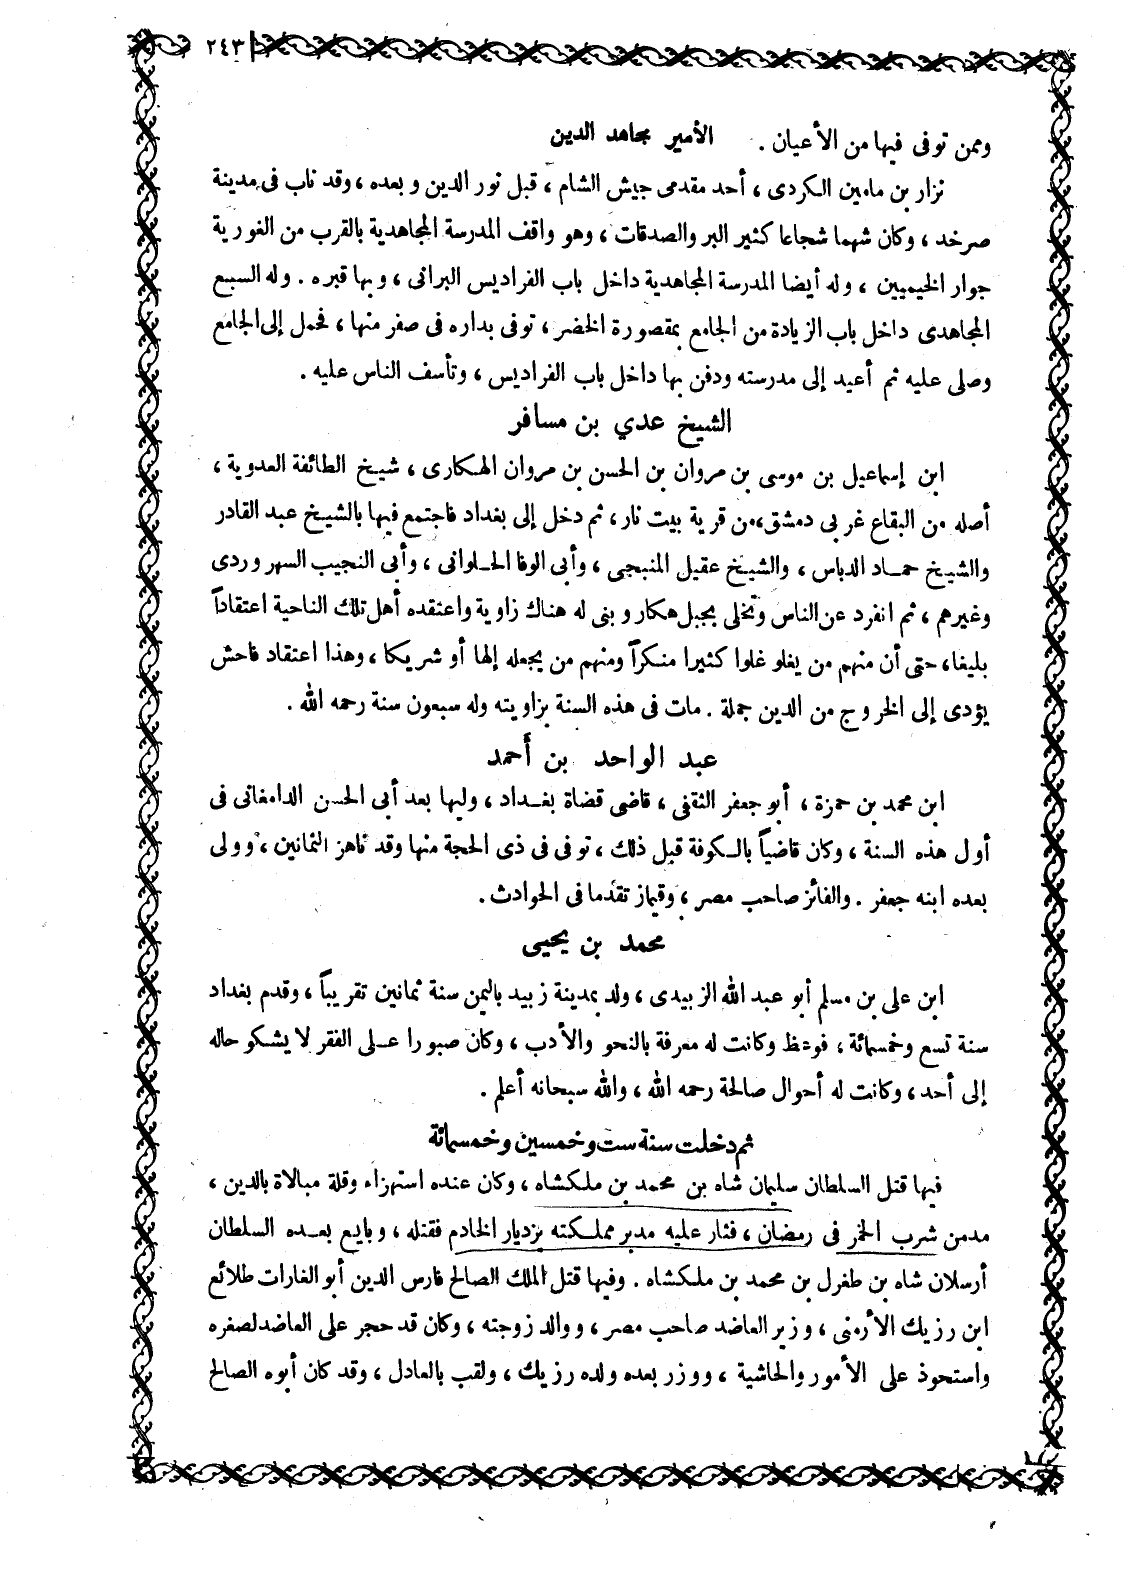 ٢٤٣
وممن توفى فيها من الأعيان . الأمير مجاهد الدين
نزار بن مامين الكردى ، أحد مقدمى جيش الشام ، قبل نور الدين و بعده ، وقد ناب فى مدينة
صرخد ، وكان شهما شجاعا كثير البر والصدقات ، وهو واقف المدرسة المجاهدية بالقرب من الغورية
جوار الخيميين ، وله أيضا المدرسة المجاهدية داخل باب الفراديس البرانى ، وبها قبره . وله السبع
المجاهدى داخل باب الزيادة من الجامع بمقصورة الخضر ، توفى بداره فى صفر منها ، فحمل إلى الجامع
وصلى عليه ثم أعيد إلى مدرسته ودفن بها داخل باب الفراديس ، وتأسف الناس عليه .
الشيخ عدي بن مسافر
ابن إسماعيل بن موسى بن مروان بن الحسن بن مروان الهكارى ، شيخ الطائفة العدوية ،
أصله من البقاع غربى دمشق ، من قرية بيت نار ، ثم دخل إلى بغداد فاجتمع فيها بالشيخ عبد القادر
والشيخ حماد الدباس ، والشيخ عقيل المنبجى ، وأبى الوفا الحلوانى ، وأبى النجيب السهروردى
وغيرهم ، ثم انفرد عن الناس وتخلى بجبل هكار و بنى له هناك زاوية واعتقده أهل تلك الناحية اعتقاداً
بليغا ، حتى أن منهم من يغلو غلوا كثيرا منكراً ومنهم من يجعله إلها أو شريكا ، وهذا اعتقاد فاحش
يؤدى إلى الخروج من الدين جملة . مات فى هذه السنة بزاويته وله سبعون سنة رحمه الله .
عبد الواحد بن أحمد
ابن محمد بن حمزة ، أبو جعفر الثقفى ، قاضى قضاة بغداد ، وليها بعد أبى الحسن الدامغانى فى
أول هذه السنة ، وكان قاضياً بالكوفة قبل ذلك ، توفى فى ذى الحجة منها وقد ناهز الثمانين ، وولى
بعده ابنه جعفر . والفائز صاحب مصر ، وقيماز تقدما فى الحوادث .
محمد بن يحيى
ابن على بن مسلم أبو عبد الله الزبيدى ، ولد بمدينة زبيد باليمن سنة ثمانين تقريباً ، وقدم بغداد
سنة تسع وخمسمائة ، فوعظ وكانت له معرفة بالنحو والأدب ، وكان صبورا على الفقر لا يشكو حاله
إلى أحد ، وكانت له أحوال صالحة رحمه الله ، والله سبحانه أعلم .
ثم دخلت سنة ست وخمسين وخمسمائة
فيها قتل السلطان سليمان شاه بن محمد بن ملكشاه ، وكان عنده استهزاء وقلة مبالاة بالدين ،
مدمن شرب الخمر فى رمضان ، فثار عليه مدبر مملكته يزديار الخادم فقتله ، و بايع بعده السلطان
أرسلان شاه بن طغرل بن محمد بن ملكشاه . وفيها قتل الملك الصالح فارس الدين أبو الغارات طلائع
ابن رزيك الأرمنى ، وزير العاضد صاحب مصر ، ووالد زوجته ، وكان قد حجر على العاضد لصغره
واستحوذ على الأمور والحاشية ، ووزر بعده ولده رزيك ، ولقب بالعادل ، وقد كان أبوه الصالح